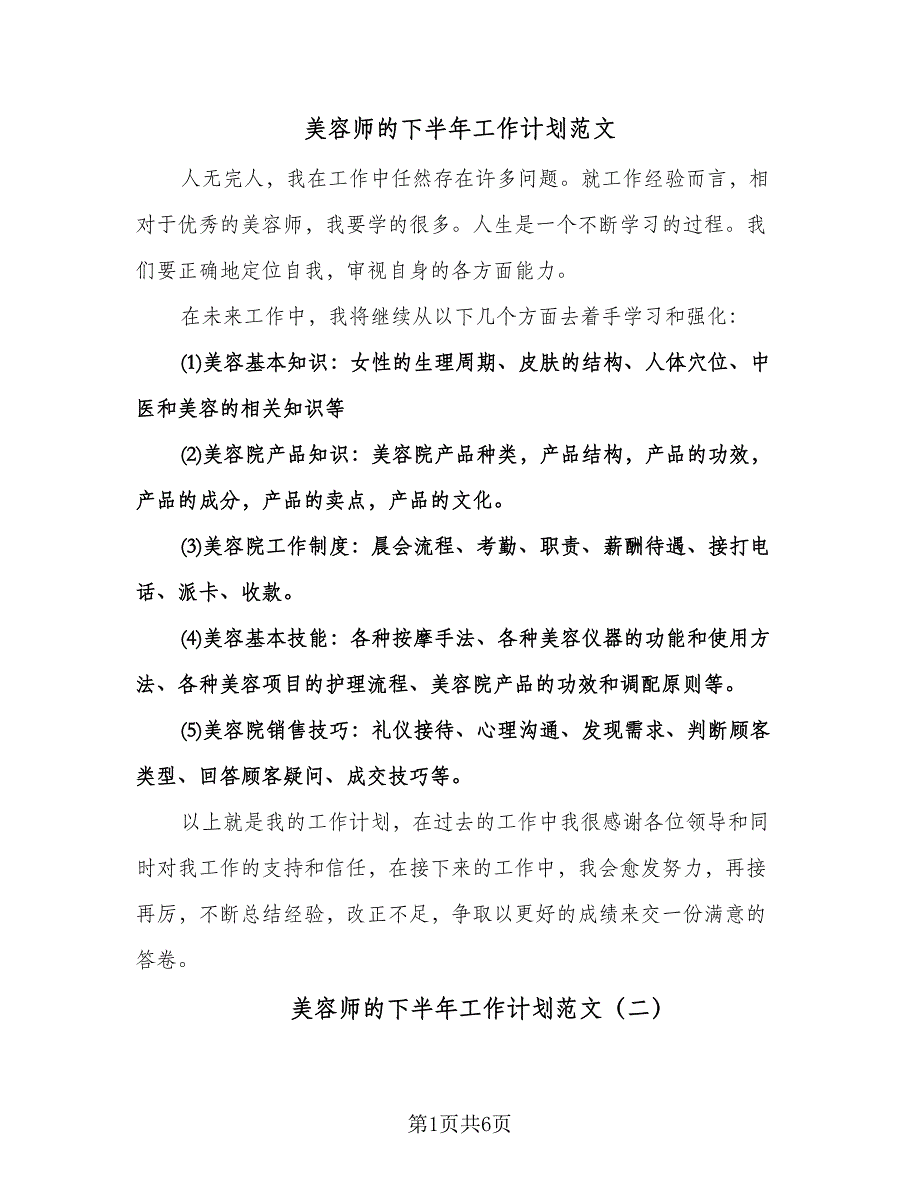 美容师的下半年工作计划范文
人无完人，我在工作中任然存在许多问题。就工作经验而言，相
对于优秀的美容师，我要学的很多。人生是一个不断学习的过程。我
们要正确地定位自我，审视自身的各方面能力。
在未来工作中，我将继续从以下几个方面去着手学习和强化：
(1)美容基本知识：女性的生理周期、皮肤的结构、人体穴位、中
医和美容的相关知识等
(2)美容院产品知识：美容院产品种类，产品结构，产品的功效，
产品的成分，产品的卖点，产品的文化。
(3)美容院工作制度：晨会流程、考勤、职责、薪酬待遇、接打电
话、派卡、收款。
(4)美容基本技能：各种按摩手法、各种美容仪器的功能和使用方
法、各种美容项目的护理流程、美容院产品的功效和调配原则等。
(5)美容院销售技巧：礼仪接待、心理沟通、发现需求、判断顾客
类型、回答顾客疑问、成交技巧等。
以上就是我的工作计划，在过去的工作中我很感谢各位领导和同
时对我工作的支持和信任，在接下来的工作中，我会愈发努力，再接
再厉，不断总结经验，改正不足，争取以更好的成绩来交一份满意的
答卷。
美容师的下半年工作计划范文（二）
第1页共6页